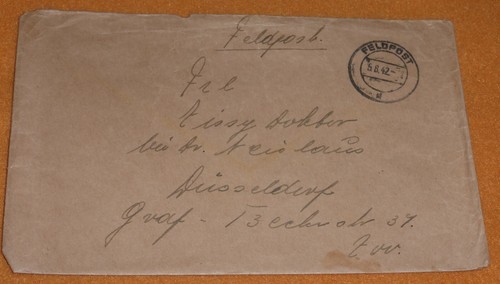 Feldpost.
FELDPOST
5.8.42.-
Frl
Sissy Dokter
bei Dr. Neulaus
Düsseldorf
Graf-Recke str 37.